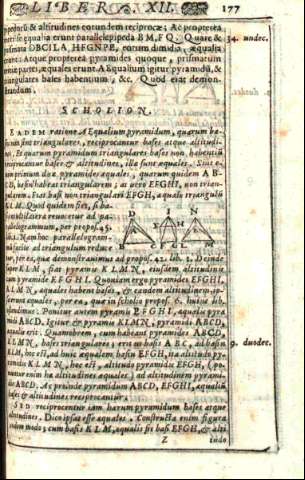 LIBER XII. 177
& altitudines eorundem reciprocæ; Ac propterea
erunt parallelepipeda BM, FQ. Quare &
prismata DBCILA, HEGNPE, eorum dimidia, æqualia
erunt: Atque propterea pyramides quoque, prismatum
partes, æquales erunt. Æqualium igitur pyramidũ, &
triangulares bases habentium, &c. Quod erat demon-
strandum.
34. undec.
SCHOLION.
EADEM ratione Æqualium pyramidum, quarum ba-
triangulares, reciprocantur bases atque altitudi-
Et quarum pyramidum triangulares bases non habentium
reciprocantur bases & altitudines, illæ sunt æquales. Sint
primum duæ pyramides æquales, quarum quidem AB-
CD, basis habeat triangularem; at vero EFGHI, non trian-
gularem. Fiat basi non triangulari EFGH, æquale triangulũ
KLM. Quod quidem fiet, si ba-
revocetur ad pa-
rallelogrammum, per propos. 45.
Namhoc parallelogram-
facile ad triangulum reduce-
D I N
tur, per ea, quæ demonstravimus ad propos. 42. lib. 1. Deinde
super KLM, fiat pyramis KLMN, eiusdem altitudinis
cum pyramide EFGHI. Quoniam ergo pyramides EFGHI,
KLMN, æquales habent bases, & eandem altitudinem, ip-
erunt æquales, per ea, quæ in scholio propos. 6. huius lib.
Ponitur autem pyramis EFGHI, æqualis pyra-
midi ABCD. Igitur & pyramis KLMN, pyramidi ABCD,
æqualis erit. Quamobrem, cum habeant pyramides ABCD,
KLMN, bases triangulares; erit ut basis ABC, ad basin
KLM, hoc est, ad huic æqualem basin EFGH, ita altitudo pyra-
midis KLMN, hoc est, altitudo pyramidis EFGH, (po-
nuntur enim hæ altitudines æquales) ad altitudinem pyrami-
dis ABCD. Ac proinde pyramidum ABCD, EFGHI, æqualiũ
bases & altitudines reciprocantur.
9. duodec.
SED reciprocentur iam harum pyramidum bases atque
altitudines. Dico ipsas esse æquales. Constructa enim figura
eodem modo; cum basis KLM, æqualis sit basi EFGH, & alti-
Z tudo